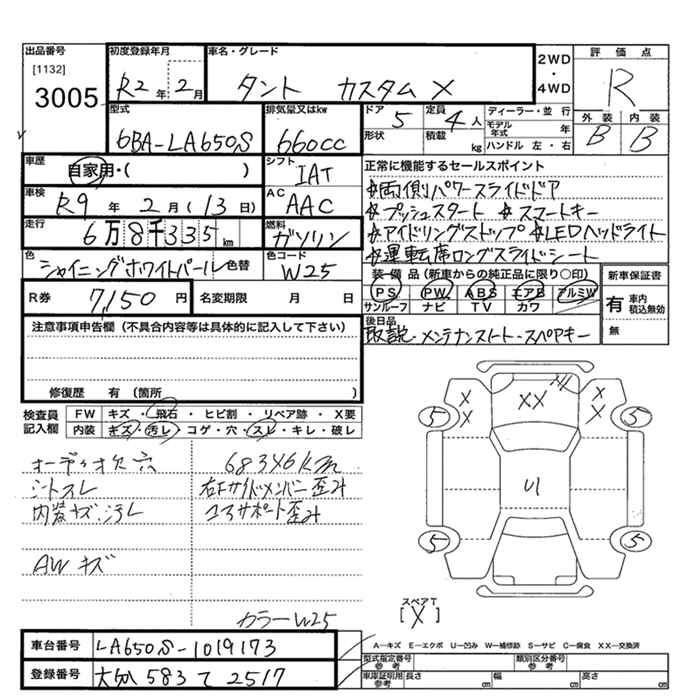 出品番号
[1132]
3005
初度登録年月
R2年2月
車名・グレード
タント カスタム X
2WD・4WD
評価点
R
型式
6BA-LA650S
排気量又はkw
660cc
ドア 5
形状
定員 4人
積載 kg
ディーラー・並行
モデル年式 年
ハンドル 左・右
外装 内装
B B
車歴
自家用・( )
シフト
IAT
車検
R9年2月(13日)
AC
AAC
走行
6万8千335km
燃料
ガソリン
色
シャイニングホワイトパール 色替
色コード
W25
R券 7,150円
名変期限 月 日
正常に機能するセールスポイント
☆両側パワースライドドア
☆プッシュスタート ☆スマートキー
☆アイドリングストップ ☆LEDヘッドライト
☆運転席ロングスライドシート
装備品(新車からの純正品に限り○印)
PS PW ABS エアB アルミW
サンルーフ ナビ TV カワ
新車保証書
有 車内積込無効
無
後日品
取説・メンテナンスノート・スペアキー
注意事項申告欄(不具合内容等は具体的に記入して下さい)
修復歴 有(箇所 )
検査員記入欄
FW キズ・飛石・ヒビ割・リペア跡・X要
内装 キズ・汚レ・コゲ・穴・スレ・キレ・破レ
オーディオ欠 穴
シートスレ
内装キズ、汚レ
AWキズ
68346km
右下サイドメンバー歪み
コアサポート歪み
カラーW25
X
X
XX
X
X
5
5
U1
5
5
スペアT
[X]
A―キズ E―エクボ U―凹み W―補修跡 S―サビ C―腐食 XX―交換済
車台番号 LA650S-1019173
登録番号 大分 583 て 2517
型式指定番号 参考
類別区分番号 参考
車庫証明用 参考
長さ cm 幅 cm 高さ cm